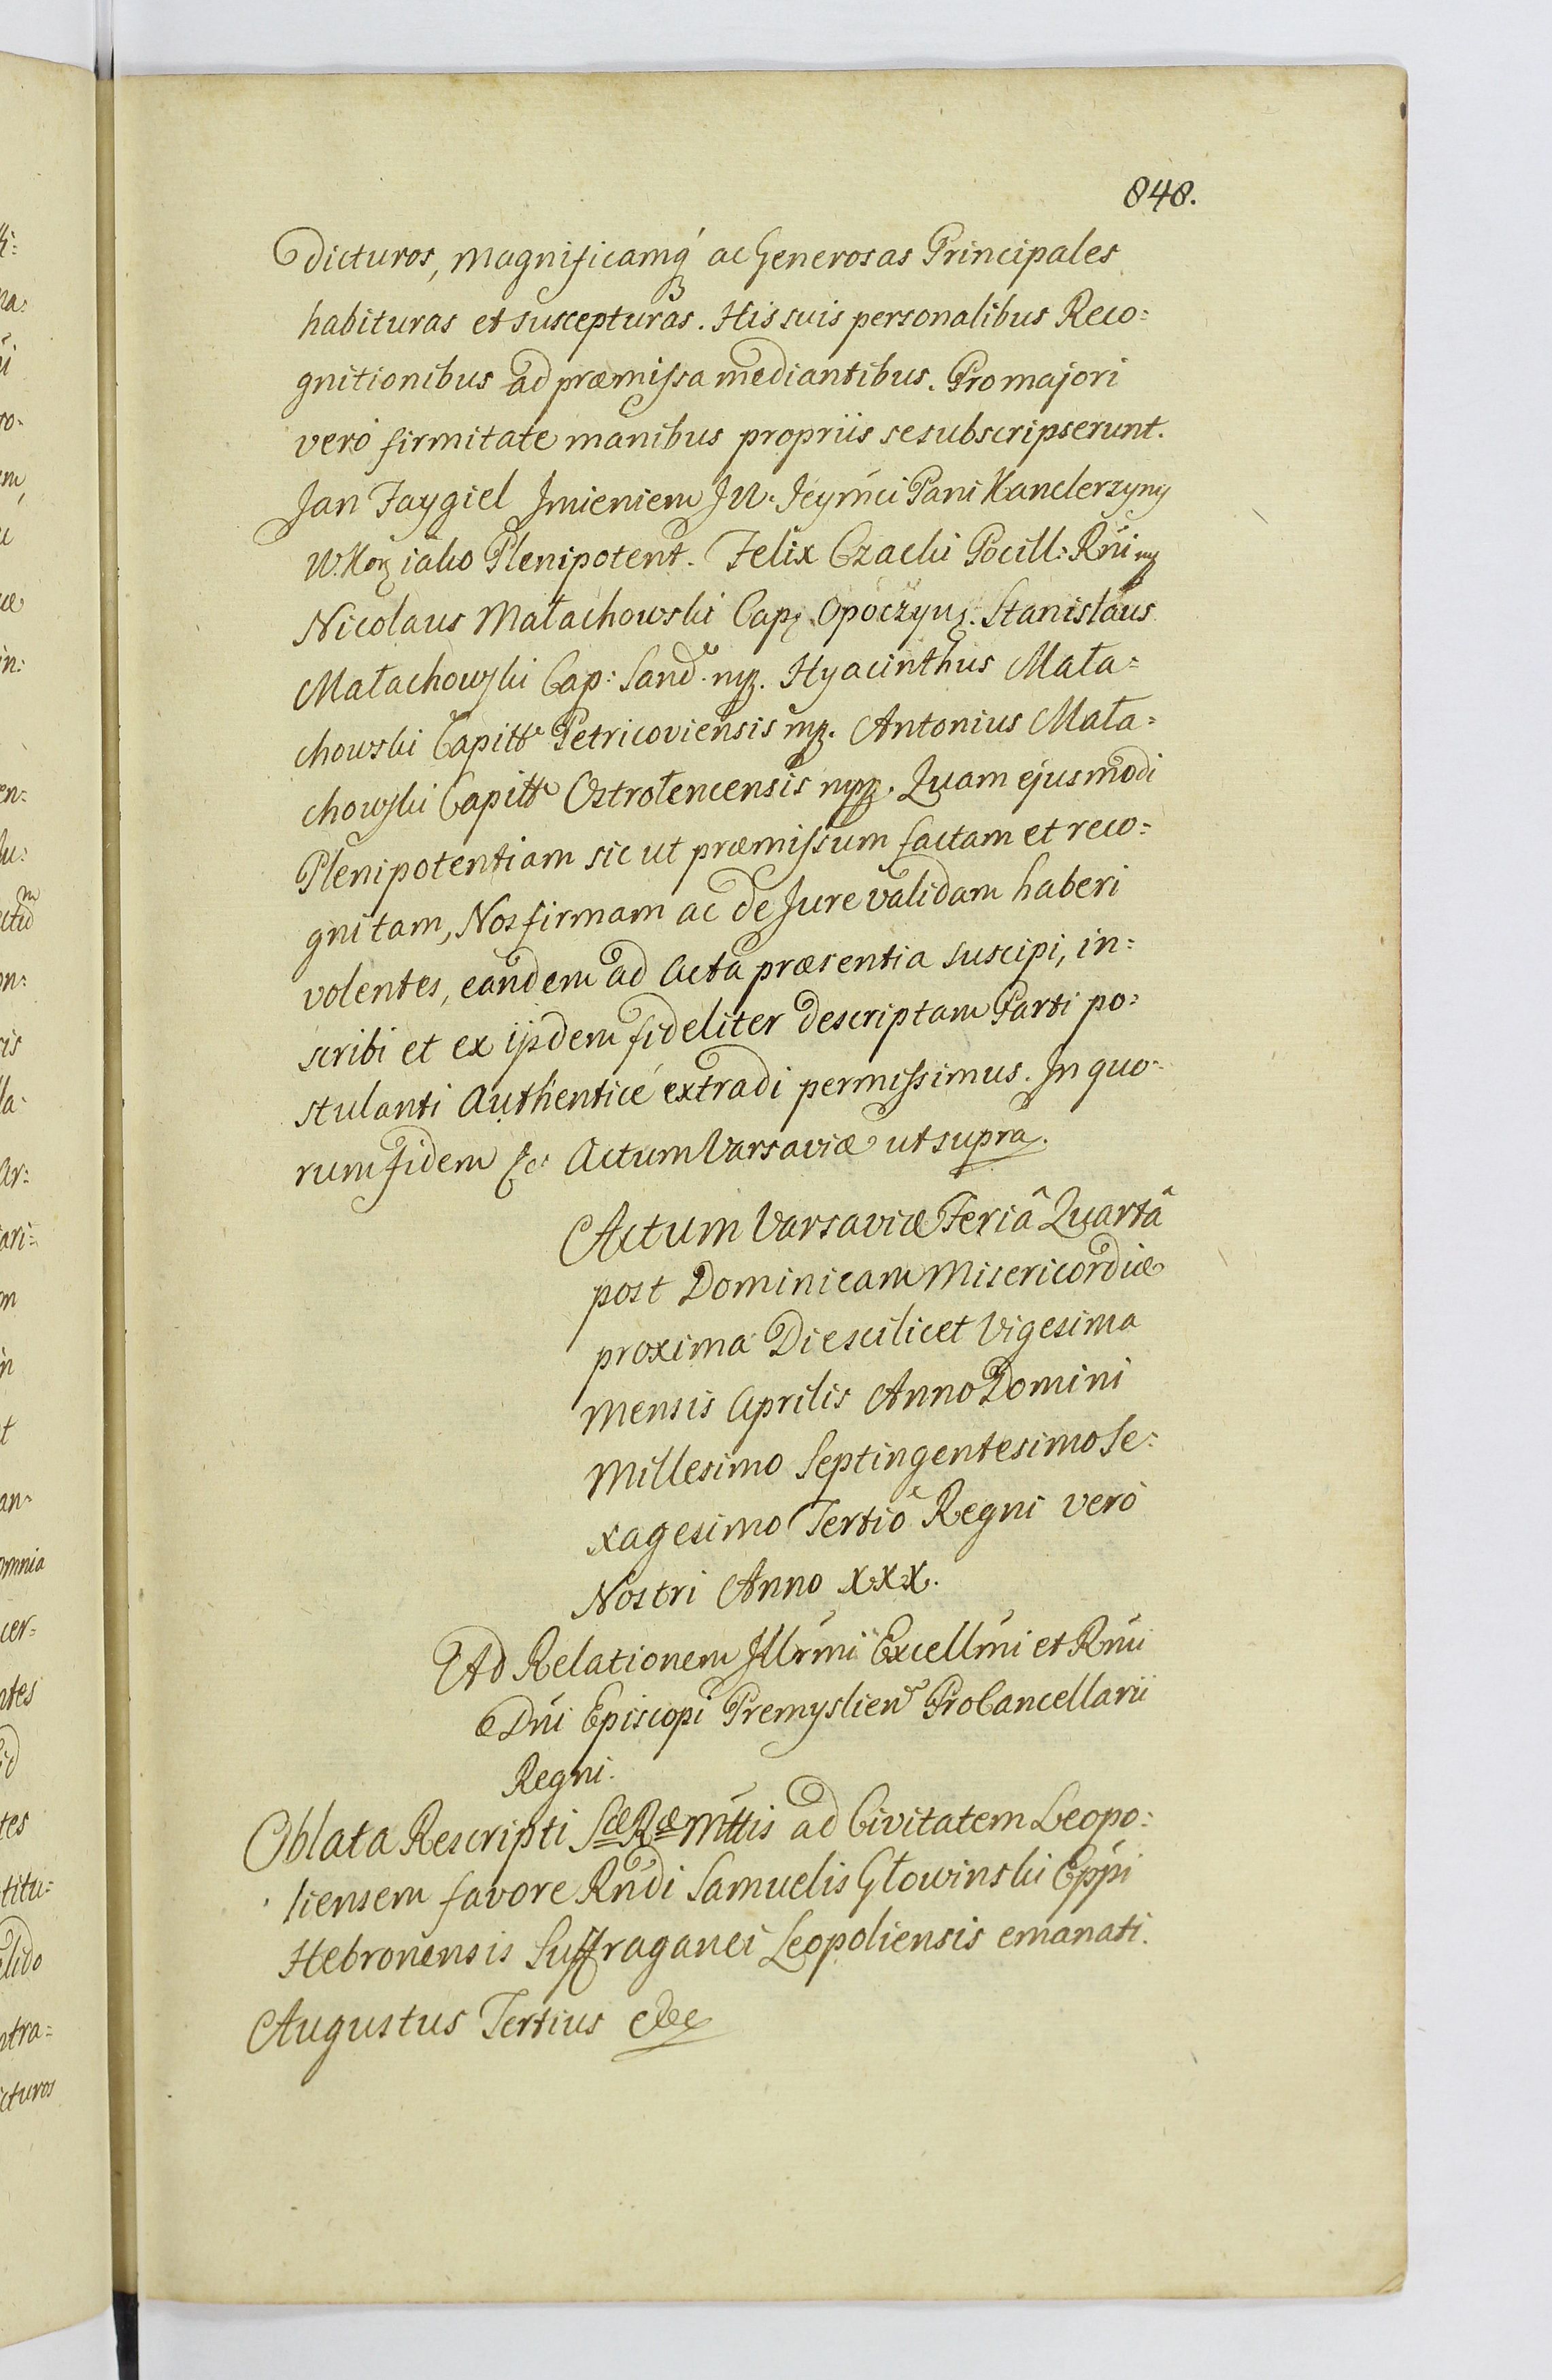 848.
dicturos, magnificamq́ ac Generosas Principales
habituras et suscepturas. His suis personalibus Reco=
gnitionibus ad præmissa mediantibus. Pro majori
verò firmitate manibus propriis se subscripserunt.
Jan Faygiel Jmieniem JW. Jeymći Pani Kanclerzyny
W. Kor: iako Plenipotent. Felix Czacki Pocill: Rńi mp
Nicolaus Małachowski Cap: Opoczyń: Stanislaus
Małachowski Cap: Sand. mp. Hyacinthus Mała=
chowski Capitt Petricoviensis mp. Antonius Mała=
chowski Capitt Ostrołencensis mpp. Quam ejusmodi
Plenipotentiam sic ut præmissum factam et reco=
gnitam, Nos firmam ac de Jure validam haberi
volentes, eandem ad Acta præsentia suscipi, in=
scribi et ex ijsdem fideliter descriptam Parti po=
stulanti Authenticè extradi permissimus. In quo=
rum fidem &c: Actum Varsaviæ ut supra.
Actum Varsaviæ Feriâ Quartâ
post Dominicam Misericordiæ
proxima Die scilicet Vigesima
Mensis Aprilis Anno Domini
Millesimo Septingentesimo Se=
xagesimo Tertiô Regni verò
Nostri Anno XXX.
Ad Relationem Illrmi Excellmi et Rmi
Dńi Episcopi Premyslien Procancellarii
Regni.
Oblata Rescripti Sæ Ræ Mttis ad Civitatem Leopo=
liensem favore Rńdi Samuelis Głowinski Eppi
Hebronensis Suffraganei Leopoliensis emanati.
Augustus Tertius &c